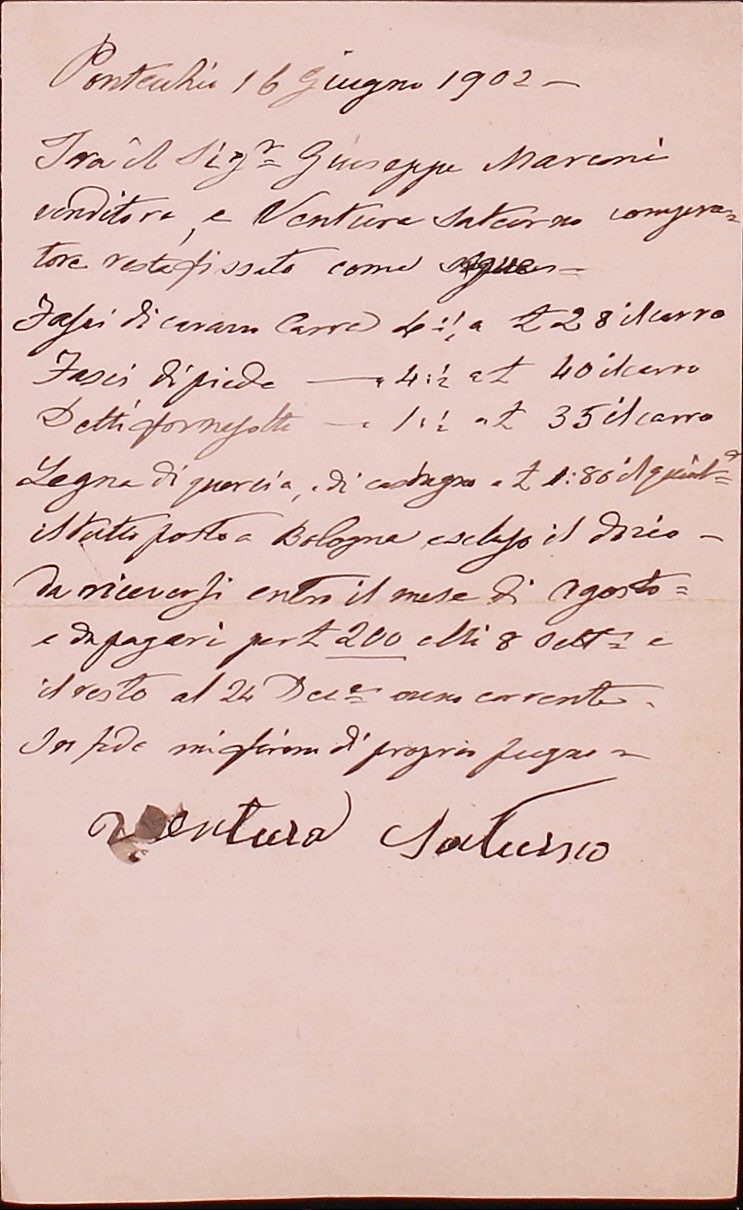 Pontecchio 16 Giugno 1902 —
Tra il Sigr= Giuseppe Marconi
venditore, e Ventura Saturno compra=
tore resta fissato come segue —
Fassi di Carri a £ 28 il carro
Fasci di piede — " 4:½ a £ 40 il carro
Detti — " 1:½ a £ 35 il carro
Legna di quercia, di castagno a £ 1:80 il quint=
il tutto posto a Bologna escluso il dazio —
da riceversi entro il mese di Agosto=
e da pagarsi per £ 200 alli 8 Sett= e
il resto al 24 Dece= anno corrente.
In fede mi firmo di proprio pugno =
Ventura Saturno